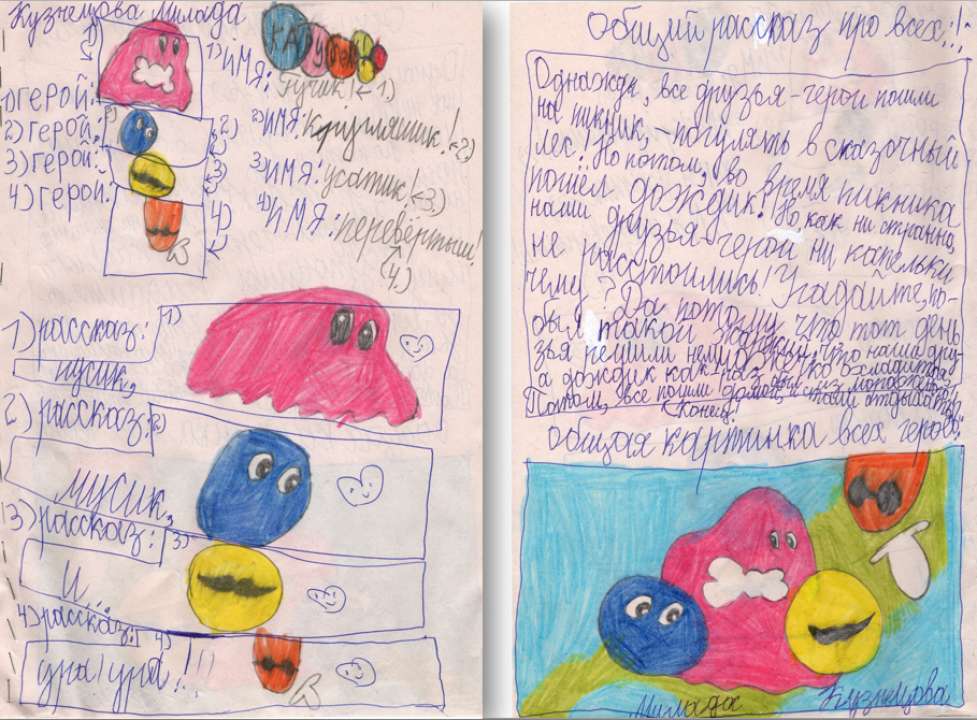 Кузнецова Милада
1) ИМЯ:
Гучик! (<-1)
1) герой:
2) герой:
2)
2) ИМЯ: Кругляшик! <-2)
3) герой:
3)
3) ИМЯ: усатик! (<3.)
4) герой:
4)
4) ИМЯ: перевёртыш!
(4.)
1) рассказ:
1)
пусик,
2) рассказ:
2)
мусик,
3) рассказ:
3)
и...
4) рассказ:
4)
ура! ура!!!!
Общий рассказ про всех!
Однажды, все друзья-герои пошли
на пикник, - погулять в сказочный
лес! Но потом, во время пикника
пошёл дождик! Но, как ни странно,
наши друзья-герои ни капельки
не расстоились! Угадайте, по-
чему? Да потому, что тот день
был такой жаркий, что наши дру-
зья решили немножко охладиться,
а дождик как раз
Потом, все пошли домой, и стали отдыхать
Конец!
Общая картинка всех героев:
Милада Кузнецова